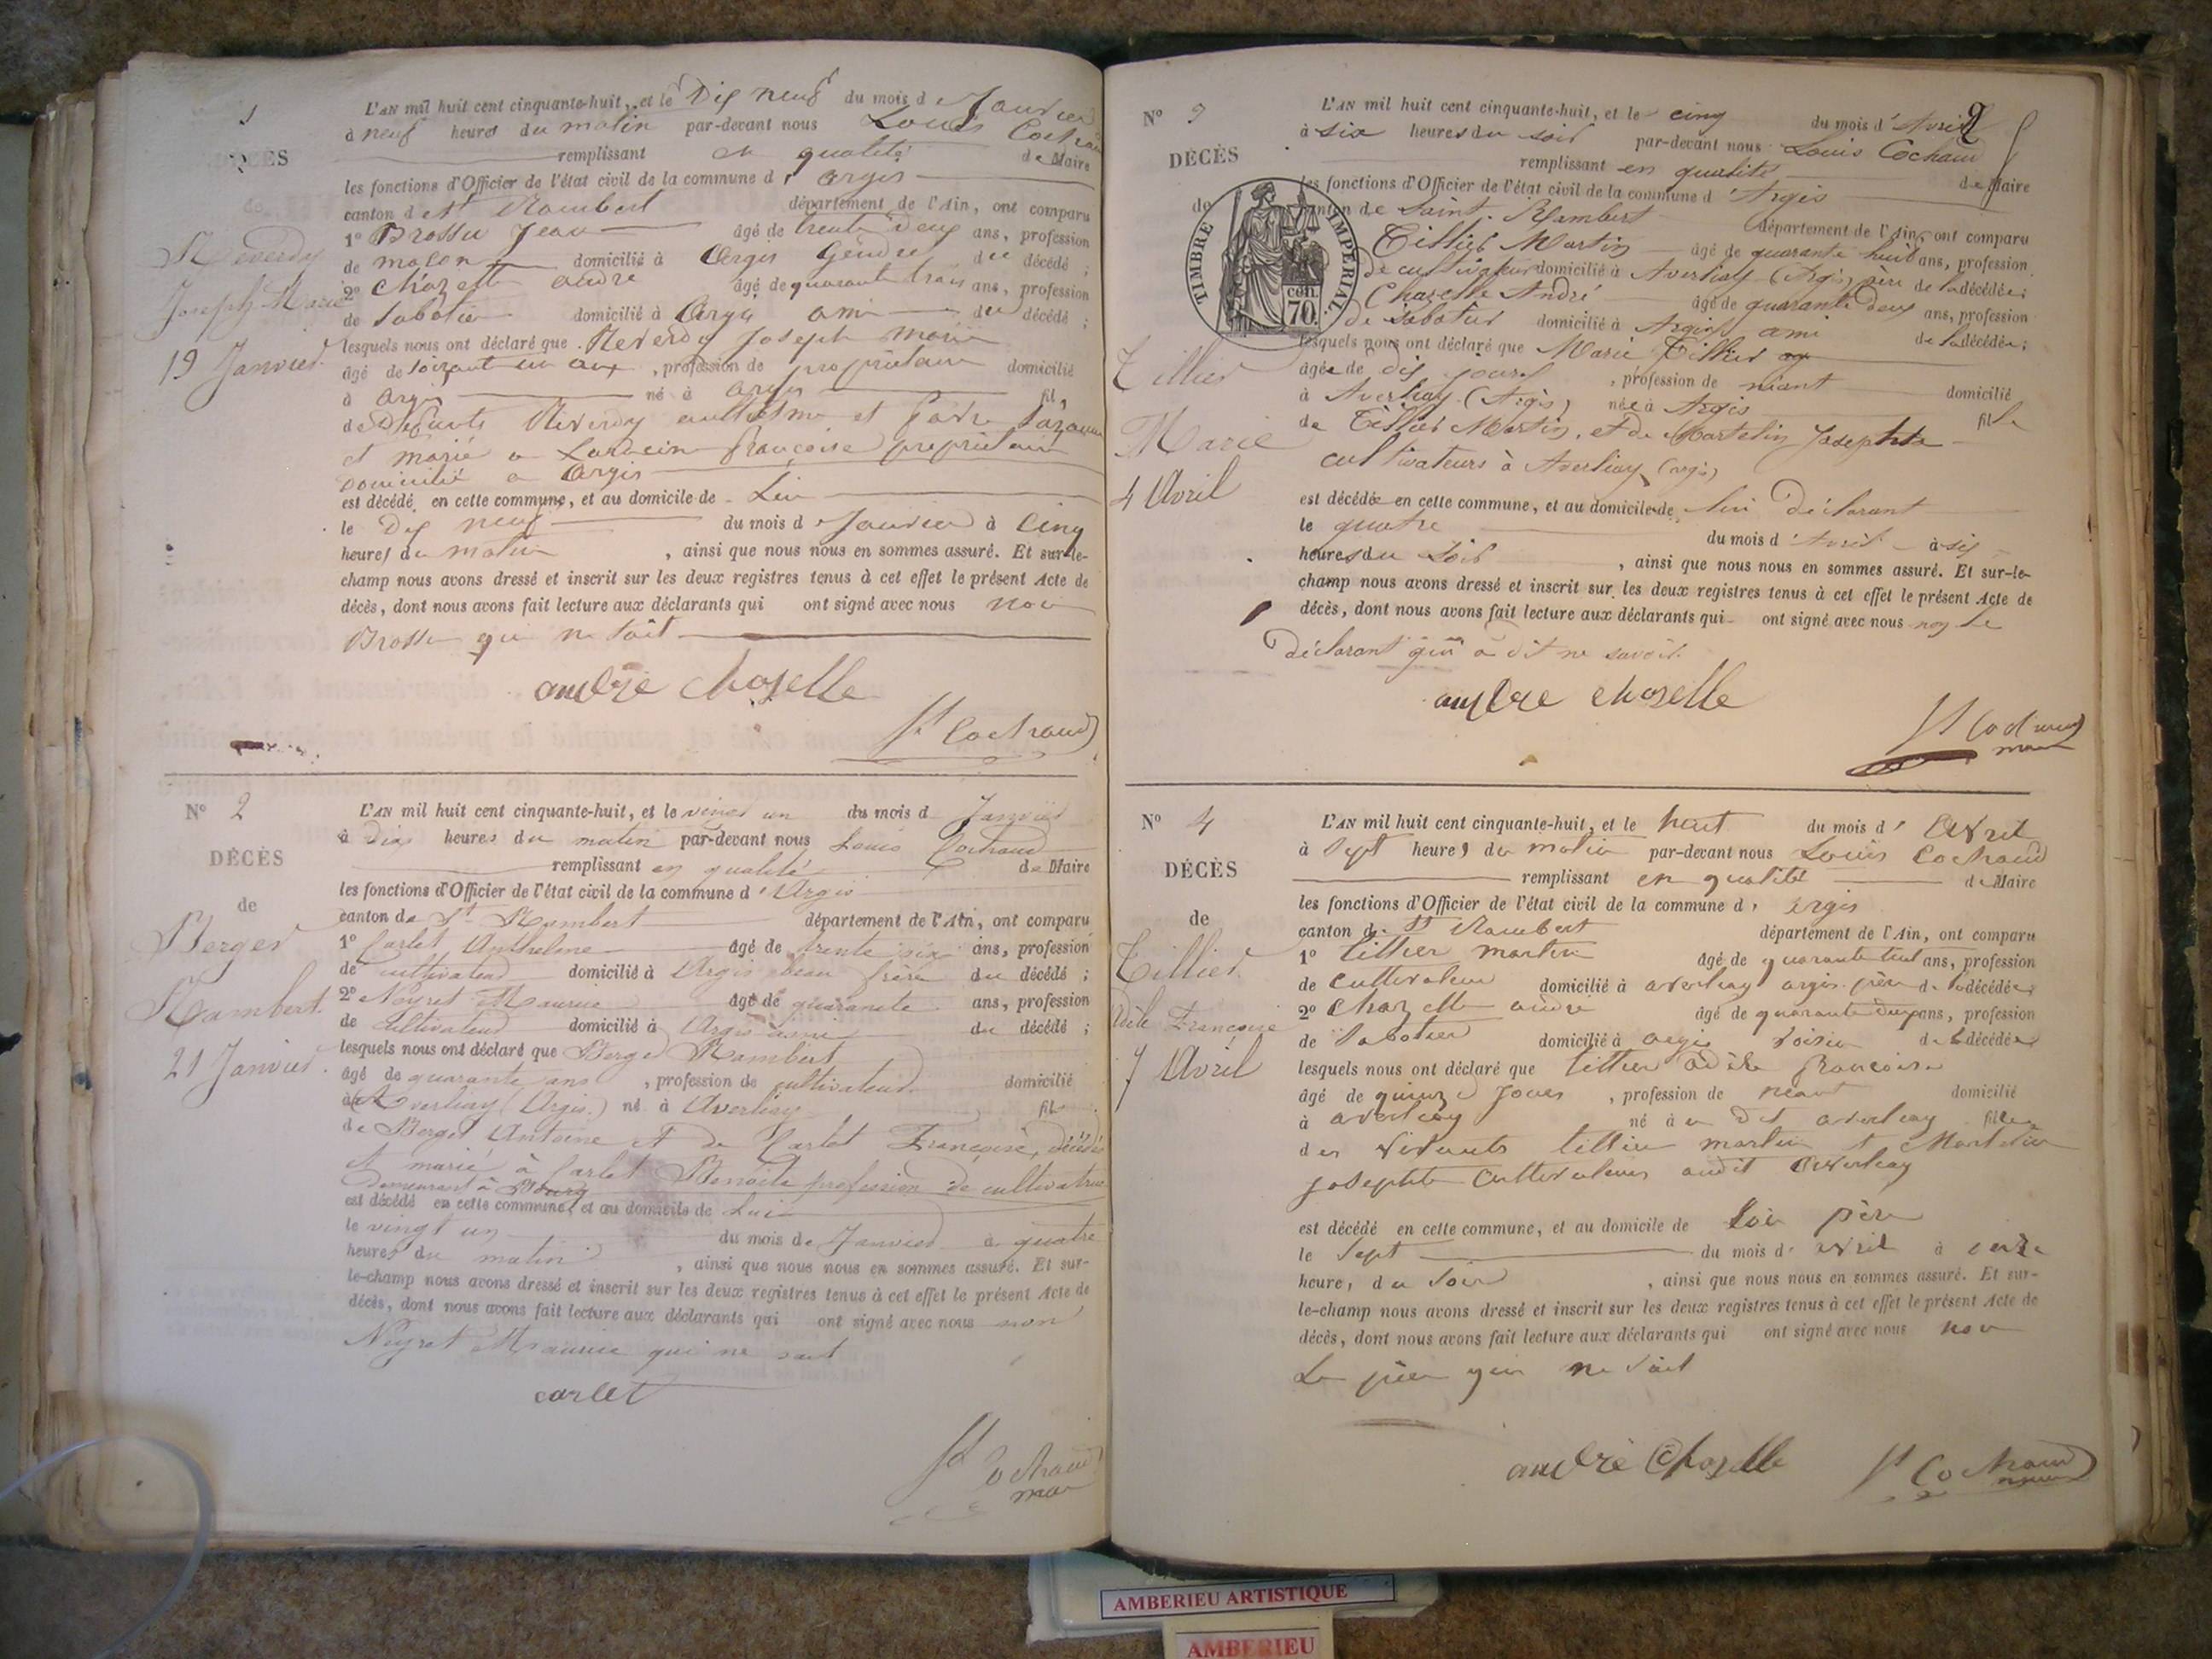 1
DÉCÈS
de
Reverdy
Joseph Marie
19 Janvier
L'AN mil huit cent cinquante-huit, et le Dix neuf du mois d Janvier
à neuf heures du matin par-devant nous Louis Cochaud
remplissant en qualité de Maire
les fonctions d'Officier de l'état civil de la commune d' argis
canton de St Rambert département de l'Ain, ont comparu
1° Brossu Jean âgé de trente deux ans, profession
de maçon domicilié à Argis Gendre du décédé ;
2° Chazette andré âgé de quarante trois ans, profession
de Sabotier domicilié à Argis ami du décédé ;
lesquels nous ont déclaré que Reverdy Joseph Marie
âgé de soixante un ans, profession de propriétaire domicilié
à argis né à argis fils
de Défunts Reverdy anthelme et
et marié a françoise propriétaire
Domicilié a Argis
est décédé en cette commune, et au domicile de Lui
le Dix neuf du mois d Janvier à Cinq
heures du matin, ainsi que nous nous en sommes assuré. Et sur-le-
champ nous avons dressé et inscrit sur les deux registres tenus à cet effet le présent Acte de
décès, dont nous avons fait lecture aux déclarants qui ont signé avec nous non
Brossu qui ne sait
andre chazelle
Ls Cochaud
N° 2
DÉCÈS
de
Berger
Rambert
21 Janvier
L'AN mil huit cent cinquante-huit, et le vingt un du mois d Janvier
à dix heures du matin par-devant nous Louis Cochaud
remplissant en qualité de Maire
les fonctions d'Officier de l'état civil de la commune d'Argis
canton de St Rambert département de l'Ain, ont comparu
1° Carlet Anthelme âgé de trente six ans, profession
de cultivateur domicilié à Argis beau frère du décédé ;
2° Neyret Maurice âgé de quarante ans, profession
de cultivateur domicilié à Argis ami du décédé ;
lesquels nous ont déclaré que Berger Rambert
âgé de quarante ans, profession de cultivateur domicilié
à Averliay (Argis) né à Averliay fils
de Berger Antoine et de Carlet Françoise, décédés
et marié à Carlet Benoite profession de cultivatrice
demeurant à
est décédé en cette commune, et au domicile de Lui
le vingt un du mois de Janvier à quatre
heures du matin, ainsi que nous nous en sommes assuré. Et sur-
le-champ nous avons dressé et inscrit sur les deux registres tenus à cet effet le présent Acte de
décès, dont nous avons fait lecture aux déclarants qui ont signé avec nous non
Neyret Maurice qui ne sait
carlet
Ls Cochaud
maire
2
N° 3
DÉCÈS
de
Tillier
Marie
4 Avril
TIMBRE IMPÉRIAL
70 cen.
L'AN mil huit cent cinquante-huit, et le cinq du mois d'Avril
à six heures du soir par-devant nous Louis Cochaud
remplissant en qualité de Maire
les fonctions d'Officier de l'état civil de la commune d'Argis
canton de Saint-Rambert département de l'Ain, ont comparu
Tillier Martin âgé de quarante huit ans, profession
de cultivateur domicilié à Averliay (Argis) père de la décédée ;
Chazelle André âgé de quarante deux ans, profession
de sabotier domicilié à Argis ami de la décédée ;
lesquels nous ont déclaré que Marie Tillier
âgée de dix jours, profession de néant domicilié
à Averliay (Argis) née à Argis fille
de Tillier Martin, et de Martelin Josephte
cultivateurs à Averliay (argis)
est décédée en cette commune, et au domicile de lui Déclarant
le quatre du mois d'Avril à six
heures du soir, ainsi que nous nous en sommes assuré. Et sur-le-
champ nous avons dressé et inscrit sur les deux registres tenus à cet effet le présent Acte de
décès, dont nous avons fait lecture aux déclarants qui ont signé avec nous non le
Déclarant qui a dit ne savoir
andre chazelle
Ls Cochaud
maire
N° 4
DÉCÈS
de
Tillier
Adèle Françoise
7 Avril
L'AN mil huit cent cinquante-huit, et le huit du mois d' Avril
à Sept heures du matin par-devant nous Louis Cochaud
remplissant en qualité de Maire
les fonctions d'Officier de l'état civil de la commune d' argis
canton de St Rambert département de l'Ain, ont comparu
1° tillier martin âgé de quarante huit ans, profession
de cultivateur domicilié à averliay argis père de la décédée
2° Chazelle andré âgé de quarante deux ans, profession
de Sabotier domicilié à argis voisin de la décédée
lesquels nous ont déclaré que tillier adèle françoise
âgé de quinze jours, profession de néant domicilié
à averliay né à u dit averliay fille
des vivants tillier martin et Martelin
Josephte cultivateurs audit averliay
est décédé en cette commune, et au domicile de Son père
le Sept du mois d' avril à onze
heure, du soir, ainsi que nous nous en sommes assuré. Et sur-
le-champ nous avons dressé et inscrit sur les deux registres tenus à cet effet le présent Acte de
décès, dont nous avons fait lecture aux déclarants qui ont signé avec nous non
Le père qui ne sait
andré Chazelle
Ls Cochaud
maire
AMBERIEU ARTISTIQUE
AMBERIEU